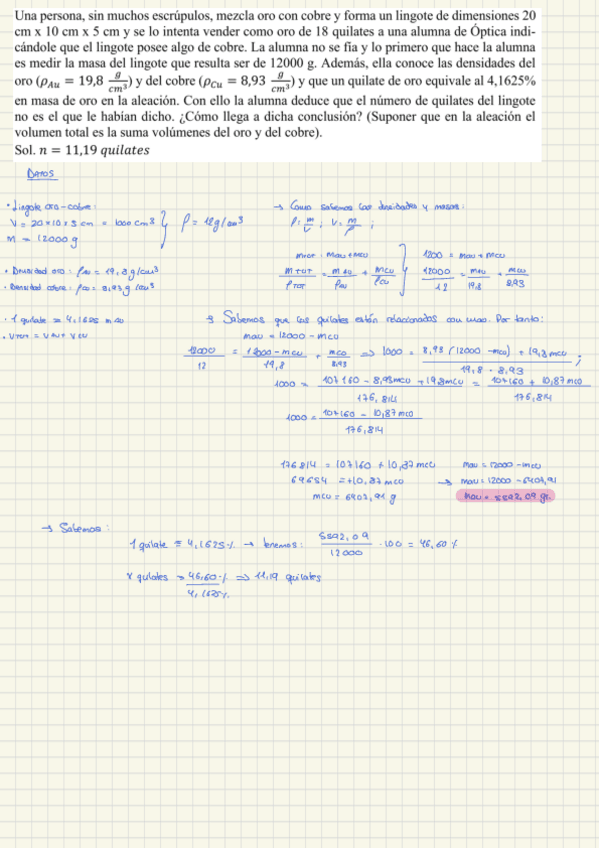 Una persona, sin muchos escrúpulos, mezcla oro con cobre y forma un lingote de dimensiones 20
cm x 10 cm x 5 cm y se lo intenta vender como oro de 18 quilates a una alumna de Óptica indi-
cándole que el lingote posee algo de cobre. La alumna no se fía y lo primero que hace la alumna
es medir la masa del lingote que resulta ser de 12000 g. Además, ella conoce las densidades del
oro (ρAu = 19,8 g/cm³) y del cobre (ρCu = 8,93 g/cm³) y que un quilate de oro equivale al 4,1625%
en masa de oro en la aleación. Con ello la alumna deduce que el número de quilates del lingote
no es el que le habían dicho. ¿Cómo llega a dicha conclusión? (Suponer que en la aleación el
volumen total es la suma volúmenes del oro y del cobre).
Sol. n = 11,19 quilates
DATOS
• Lingote oro-cobre:
V = 20×10×5 cm = 1000 cm³
m = 12000 g
ρ = 12g/cm³
• Densidad oro: ρAu = 19,8 g/cm³
• Densidad cobre: ρCu = 8,93 g/cm³
• 1 quilate ≈ 4,1625 m Au
• VTOT = VAu + VCu
→ Como sabemos las densidades y masas:
ρ = m/V ; V = m/ρ ;
mTOT = mAu + mCu
mTOT/ρTOT = mAu/ρAu + mCu/ρCu
1200 = mAu + mCu
12000/12 = mAu/19,8 + mCu/8,93
→ Sabemos que los quilates están relacionados con mAu. Por tanto:
mAu = 12000 - mCu
12000/12 = 12000 - mCu/19,8 + mCu/8,93 ⇒ 1000 = 8,93 (12000 - mCu) + 19,8 mCu/19,8 · 8,93 ;
1000 = 107160 - 8,93mCu + 19,8mCu/176,814 = 107160 + 10,87mCu/176,814
1000 = 107160 - 10,87mCu/176,814
176814 = 107160 + 10,87 mCu
69654 = +10,87 mCu
mCu = 6407,91 g
mAu = 12000 - mCu
→ mAu = 12000 - 6407,91
mAu = 5592,09 gr.
→ Sabemos:
1 quilate ≡ 4,1625% → tenemos: 5592,09/12000 · 100 = 46,60 %
x quilates → 46,60%/4,1625% ⇒ 11,19 quilates